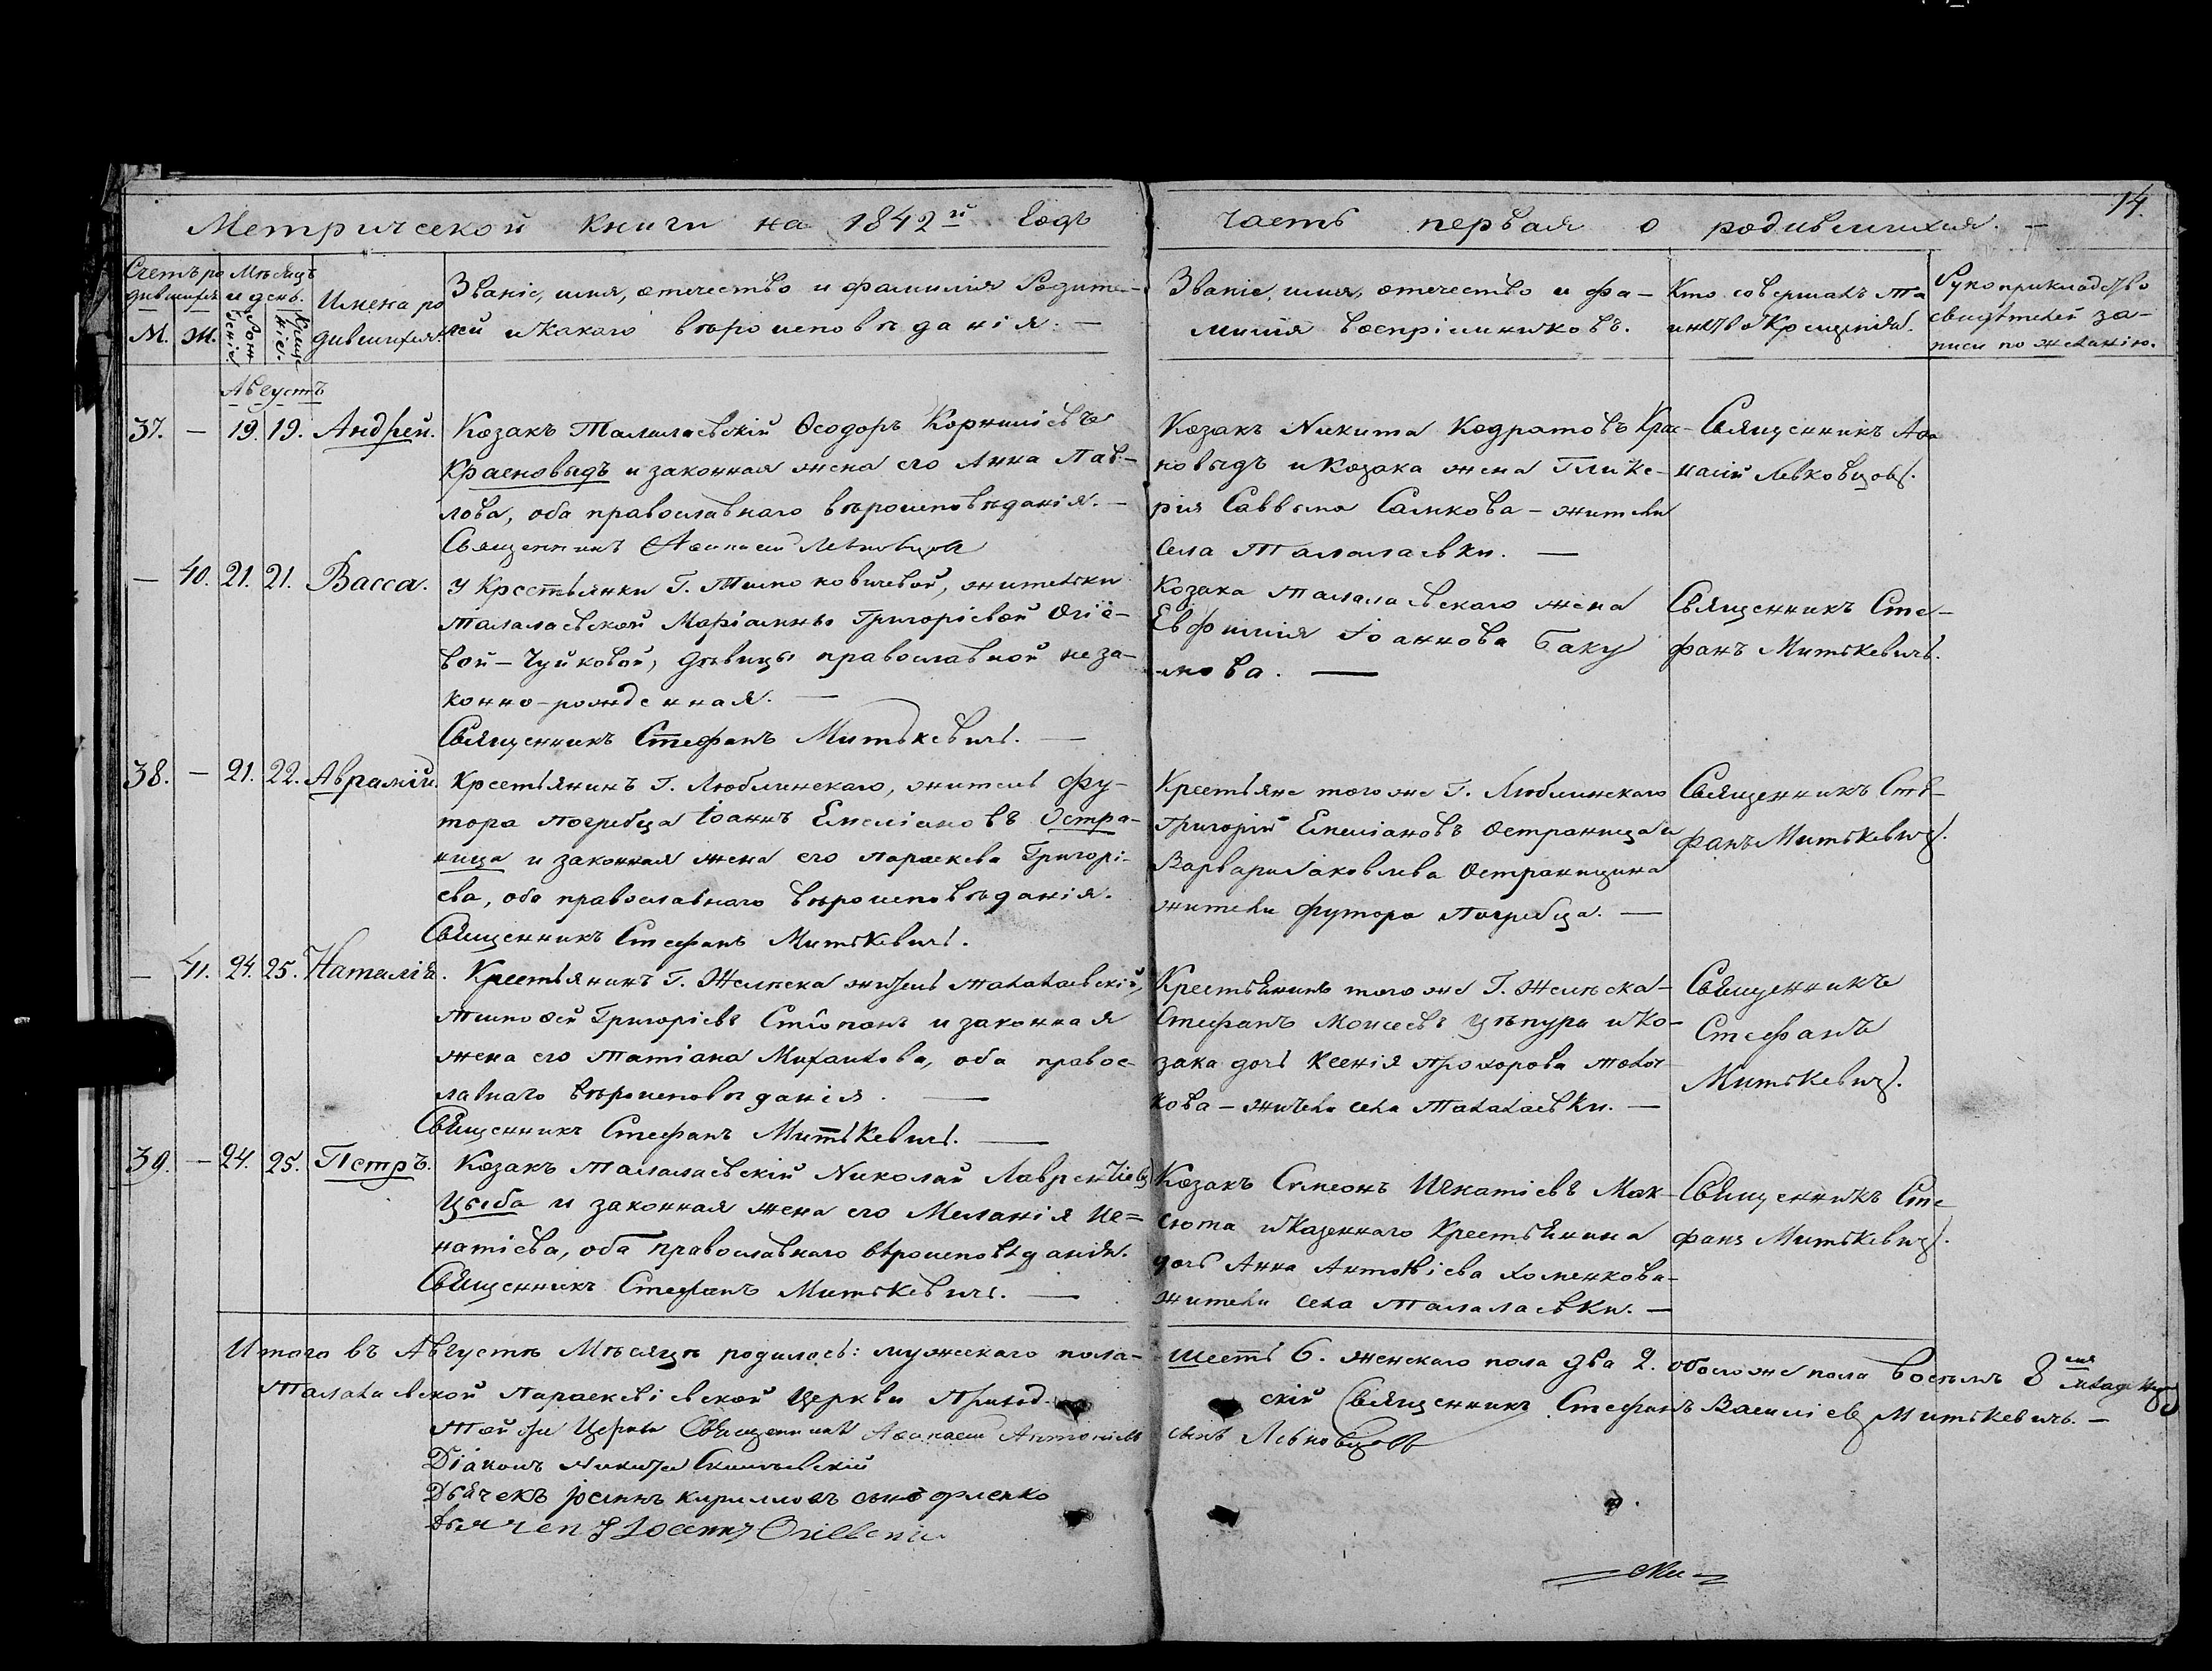 14.
Метрической книги на 1842й Годъ часть первая о родившихся. —
Счетъ ро
дившихся
М. Ж.
Мѣсяцъ
и день.
Рож
деніе.
Креще
ніе.
Имена ро
дившихся.
Званіе, имя, отечество и фамилія Родите-
лей и какаго вѣроисповѣданія. —
Званіе, имя, отечество и фа-
милія воспріемниковъ.
Кто совершалъ та
инство Крещенія.
Рукоприкладство
свидѣтелей за-
писи по желанію.
Августъ
37. — 19. 19. Андрей.
Козакъ Талалаевскій Ѳеодоръ Корниліевъ
Красновыдъ и законная жена его Анна Пав-
лова, оба православнаго вѣроисповѣданія. —
Священникъ Аѳанасій Левковцовъ
Козакъ Никита Кодратовъ Кра-
новыдъ и Козака жена Глике-
рия Саввына Салкова — жители
села Талалаевки. —
Священникъ Аѳа
насій Левковцовъ.
— 40. 21. 21. Васса.
У Крестьянки Г. Милорадовичевой, жительки
Талалаевской Маріамны Григоріевой Огіе-
вой — Чуйковой, дѣвицы православной неза-
конно-рожденная. —
Священникъ Стефанъ Митькевичъ. —
Козака Талалаевскаго жена
Евфимія Іоаннова Баку
мова. —
Священникъ Сте-
фанъ Митькевичъ.
38. — 21. 22. Аврамій.
Крестьянинъ Г. Люблинскаго, житель Фу-
тора Погребца Іоаннъ Емеліановъ Остра-
ница и законная жена его Параскева Григорі-
ева, оба православнаго вѣроисповѣданія.
Священникъ Стефанъ Митькевичъ.
Крестьяне того же Г. Люблинскаго
Григорій Емеліановъ Остраница и
Варвара Іаковлева Остраницина
жители футора Погребца. —
Священникъ Сте-
фанъ Митькевичъ.
— 41. 24. 25. Наталія.
Крестьянинъ Г. Желѣска житель Талалаевскій,
Тимоѳей Григоріевъ и законная
жена его Татіана Михаилова, оба правос-
лавнаго вѣроисповѣданія. —
Священникъ Стефанъ Митькевичъ. —
Крестьянинъ того же Г. Желѣска-
Стефанъ Моисеевъ Цѣпура и Ко-
зака дочь Ксенія Прохорова
кова — жители села Талалаевки. —
Священникъ
Стефанъ
Митькевичъ.
39. — 24. 25. Петръ.
Козакъ Талалаевскій Николай Лаврентіевъ
Цыба и законная жена его Меланія Иг=
натіева, оба Православнаго вѣроисповѣданія.
Священникъ Стефанъ Митькевичъ. —
Козакъ Симеонъ Игнатіевъ Мак-
сюта и Казеннаго Крестьянина
дочь Анна Антоніева Хоменкова-
жители села Талалаевки. —
Священникъ Сте
фанъ Митькевичъ.
Итого въ Августѣ Мѣсяцѣ родилось: мужескаго пола — шесть 6. женскаго пола два 2. обоего же пола восемь 8
Талалаевской Параскевіевской Церкви Приход скій Священникъ Стефанъ Василіевъ Митькевичъ. —
Той же Церкви Священникъ Аѳанасій Антоніевъ сынъ Левковцовъ
Діаконъ Никита
Дьячекъ Іоаннъ Кирилловъ сынъ
Дьячекъ Іоаннъ